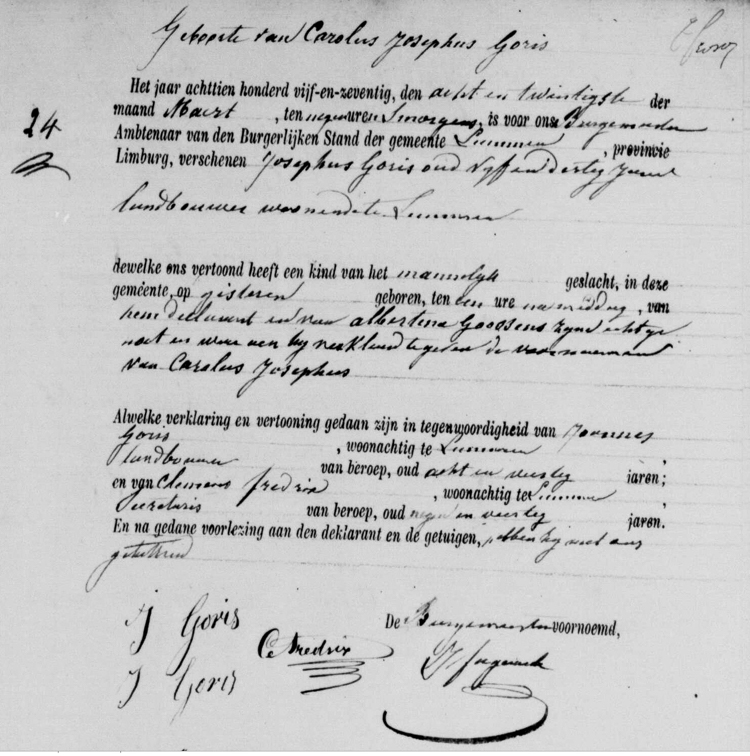 Geboorte van Carolus Josephus Goris
24
Het jaar achttien honderd vijf-en-zeventig, den acht en twintigste der
maand Maert, ten negen uren Smorgens, is voor ons Burgemeester
Ambtenaar van den Burgerlijken Stand der gemeente Lummen, provincie
Limburg, verschenen Josephus Goris oud Vyf en dertig Jaeren
landbouwer woonende te Lummen
dewelke ons vertoond heeft een kind van het mannelyk geslacht, in deze
gemeente, op gisteren geboren, ten een ure namiddag, van
hem declarant en van Albertena Goosens zyne echtge
noot en waer aen hy verklaerd te geven de voornaemen
van Carolus Josephus
Alwelke verklaring en vertooning gedaan zijn in tegenwoordigheid van Joannes
Goris, woonachtig te Lummen
landbouwer van beroep, oud acht en veertig jaren;
en van Clemens Fredrix, woonachtig te Lummen,
Secretaris van beroep, oud negen en veertig jaren.
En na gedane voorlezing aan den deklarant en de getuigen, hebben zy met ons
geteekend
J Goris
De Burgemeester voornoemd,
C Fredrix
J Goris